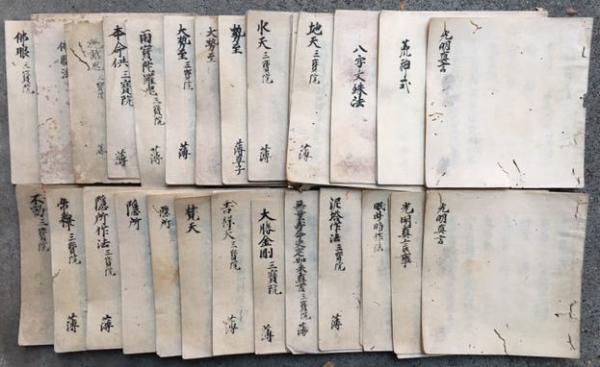 光明真言
八字文殊法
地天 三寶院 薄
水天 三寶院 薄
勢至 薄草子
大勢至
大勢至 三寶院 薄
雨寶陀羅尼 三寶院 薄
本命供 三寶院 薄
三寶院 薄
佛眼法
佛眼 三寶院
光明真言
光明真言
泥塔作法 三寶院 薄
無量壽命決定如来真言 三寶院 薄
大勝金剛 三寶院 薄
吉祥天 三寶院 薄
梵天
隱所
隱所
隱所作法 三寶院 薄
三寶院 薄
不動 三寶院